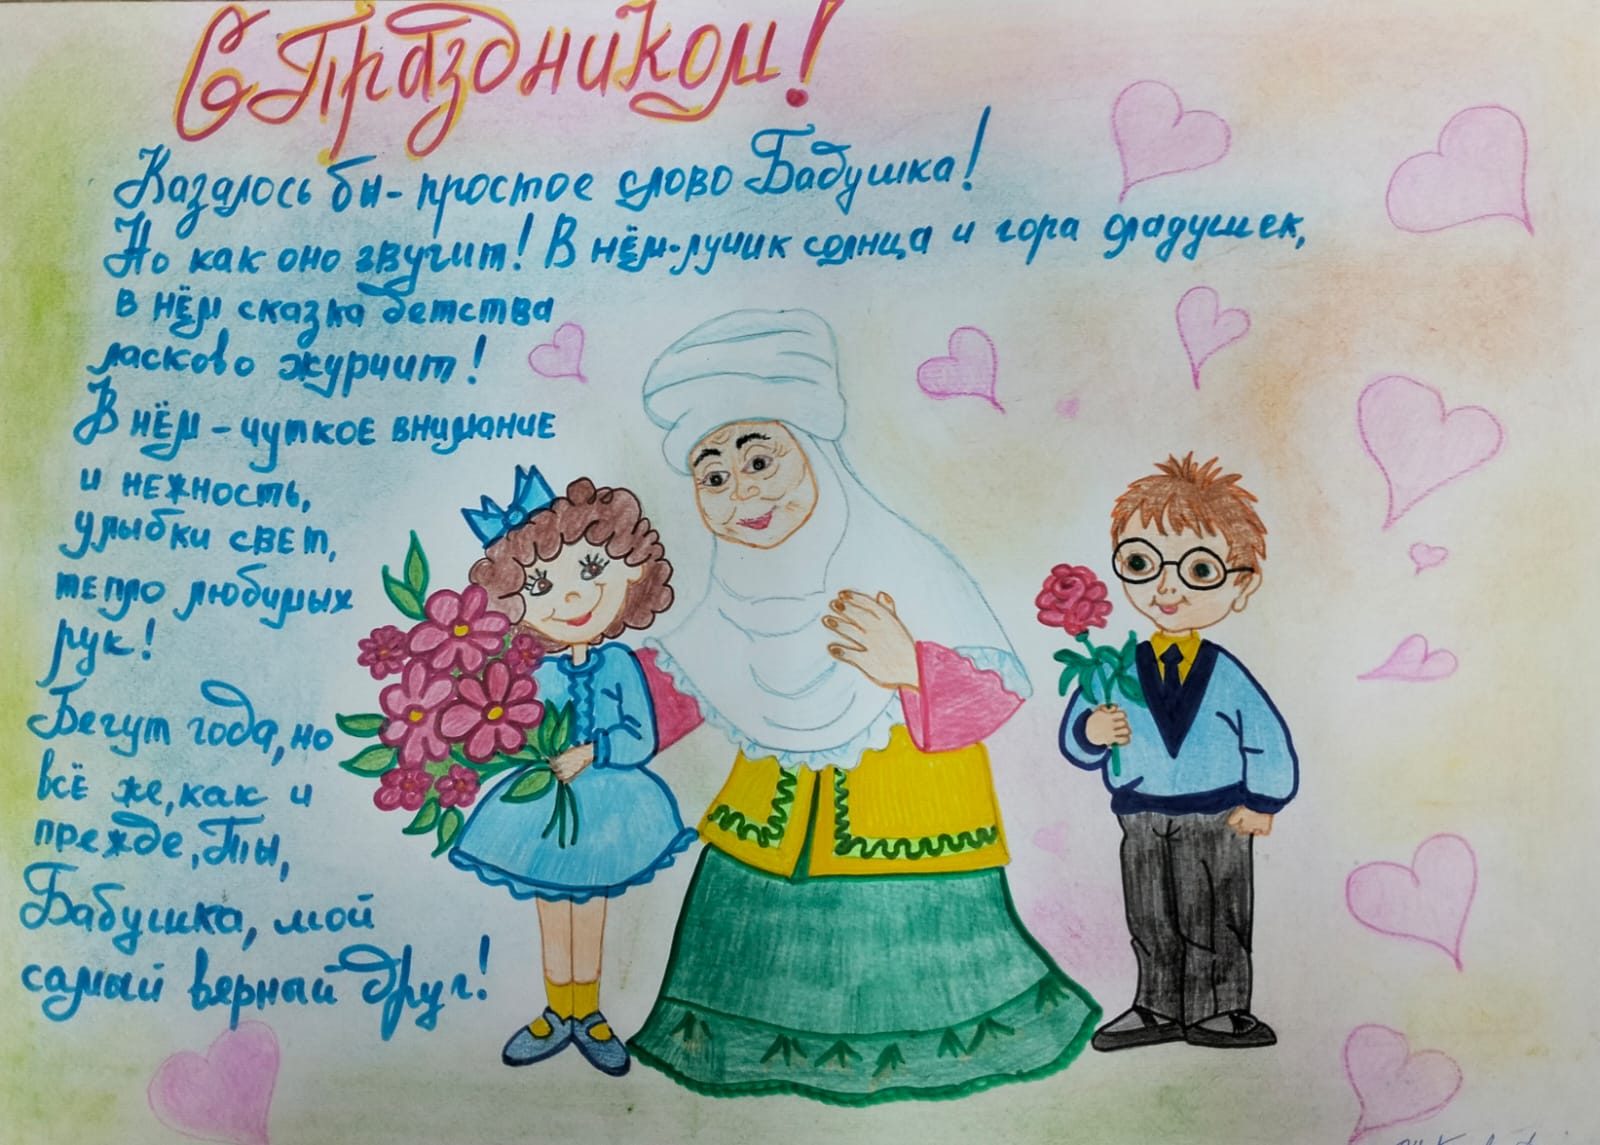 С Праздником!
Казалось бы - простое слово Бабушка!
Но как оно звучит! В нём - лучик солнца и гора оладушек,
в нём сказка детства
ласково журчит!
В нём - чуткое внимание
и нежность,
улыбки свет,
тепло любимых
рук!
Бегут года, но
всё же, как и
прежде, Ты,
Бабушка, мой
самый верный друг!